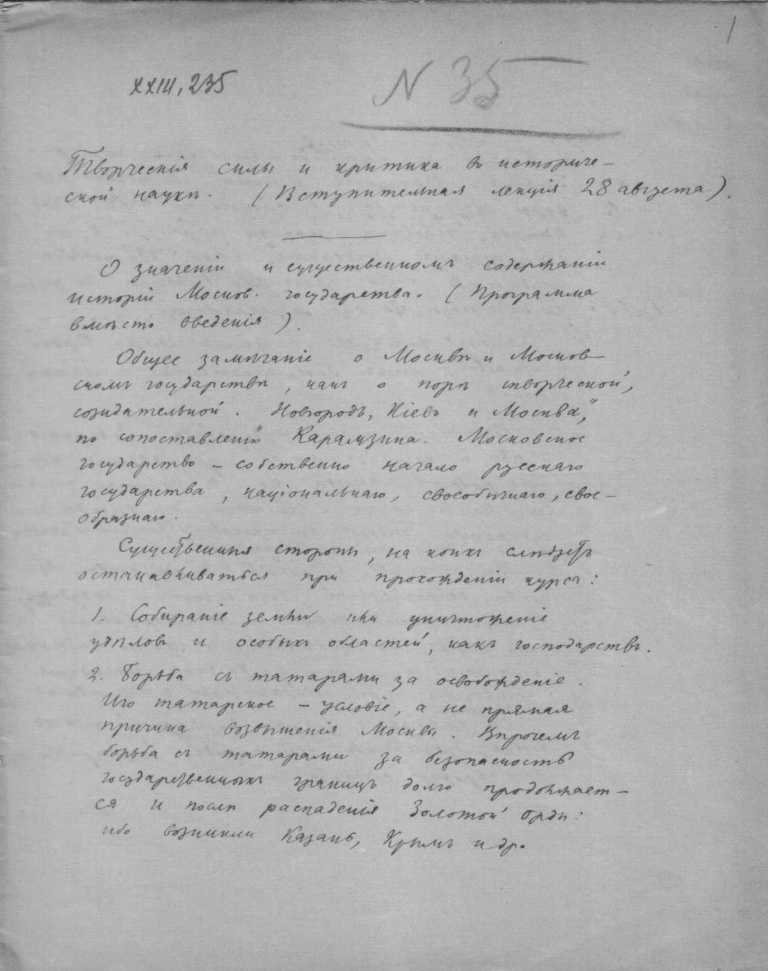 1
XXIII, 235
N 35
Творческія силы и критика въ историче-
ской наукѣ. (Вступительная лекція 28 августа).
О значеніи и существенномъ содержаніи
исторіи Москов. государства. (Программа
вмѣсто введенія).
Общее замѣчаніе о Москвѣ и Москов-
скомъ государствѣ, какъ о порѣ творческой,
созидательной. "Новгородъ, Кіевъ и Москва",
по сопоставленію Карамзина. Московское
государство – собственно начало русскаго
государства, національнаго, своеобычнаго, свое-
образнаго.
Существенныя стороны, на коихъ слѣдуетъ
останавливаться при прохожденіи курса:
1. Собираніе земли или уничтоженіе
удѣловъ и особыхъ областей, какъ господарствъ.
2. Борьба съ татарами за освобожденіе.
Иго татарское – условіе, а не прямая
причина возвышенія Москвы. Впрочемъ
борьба съ татарами за безопасность
государственныхъ границъ долго продолжает-
ся и послѣ распаденія Золотой Орды:
ибо возникли Казань, Крымъ и др.